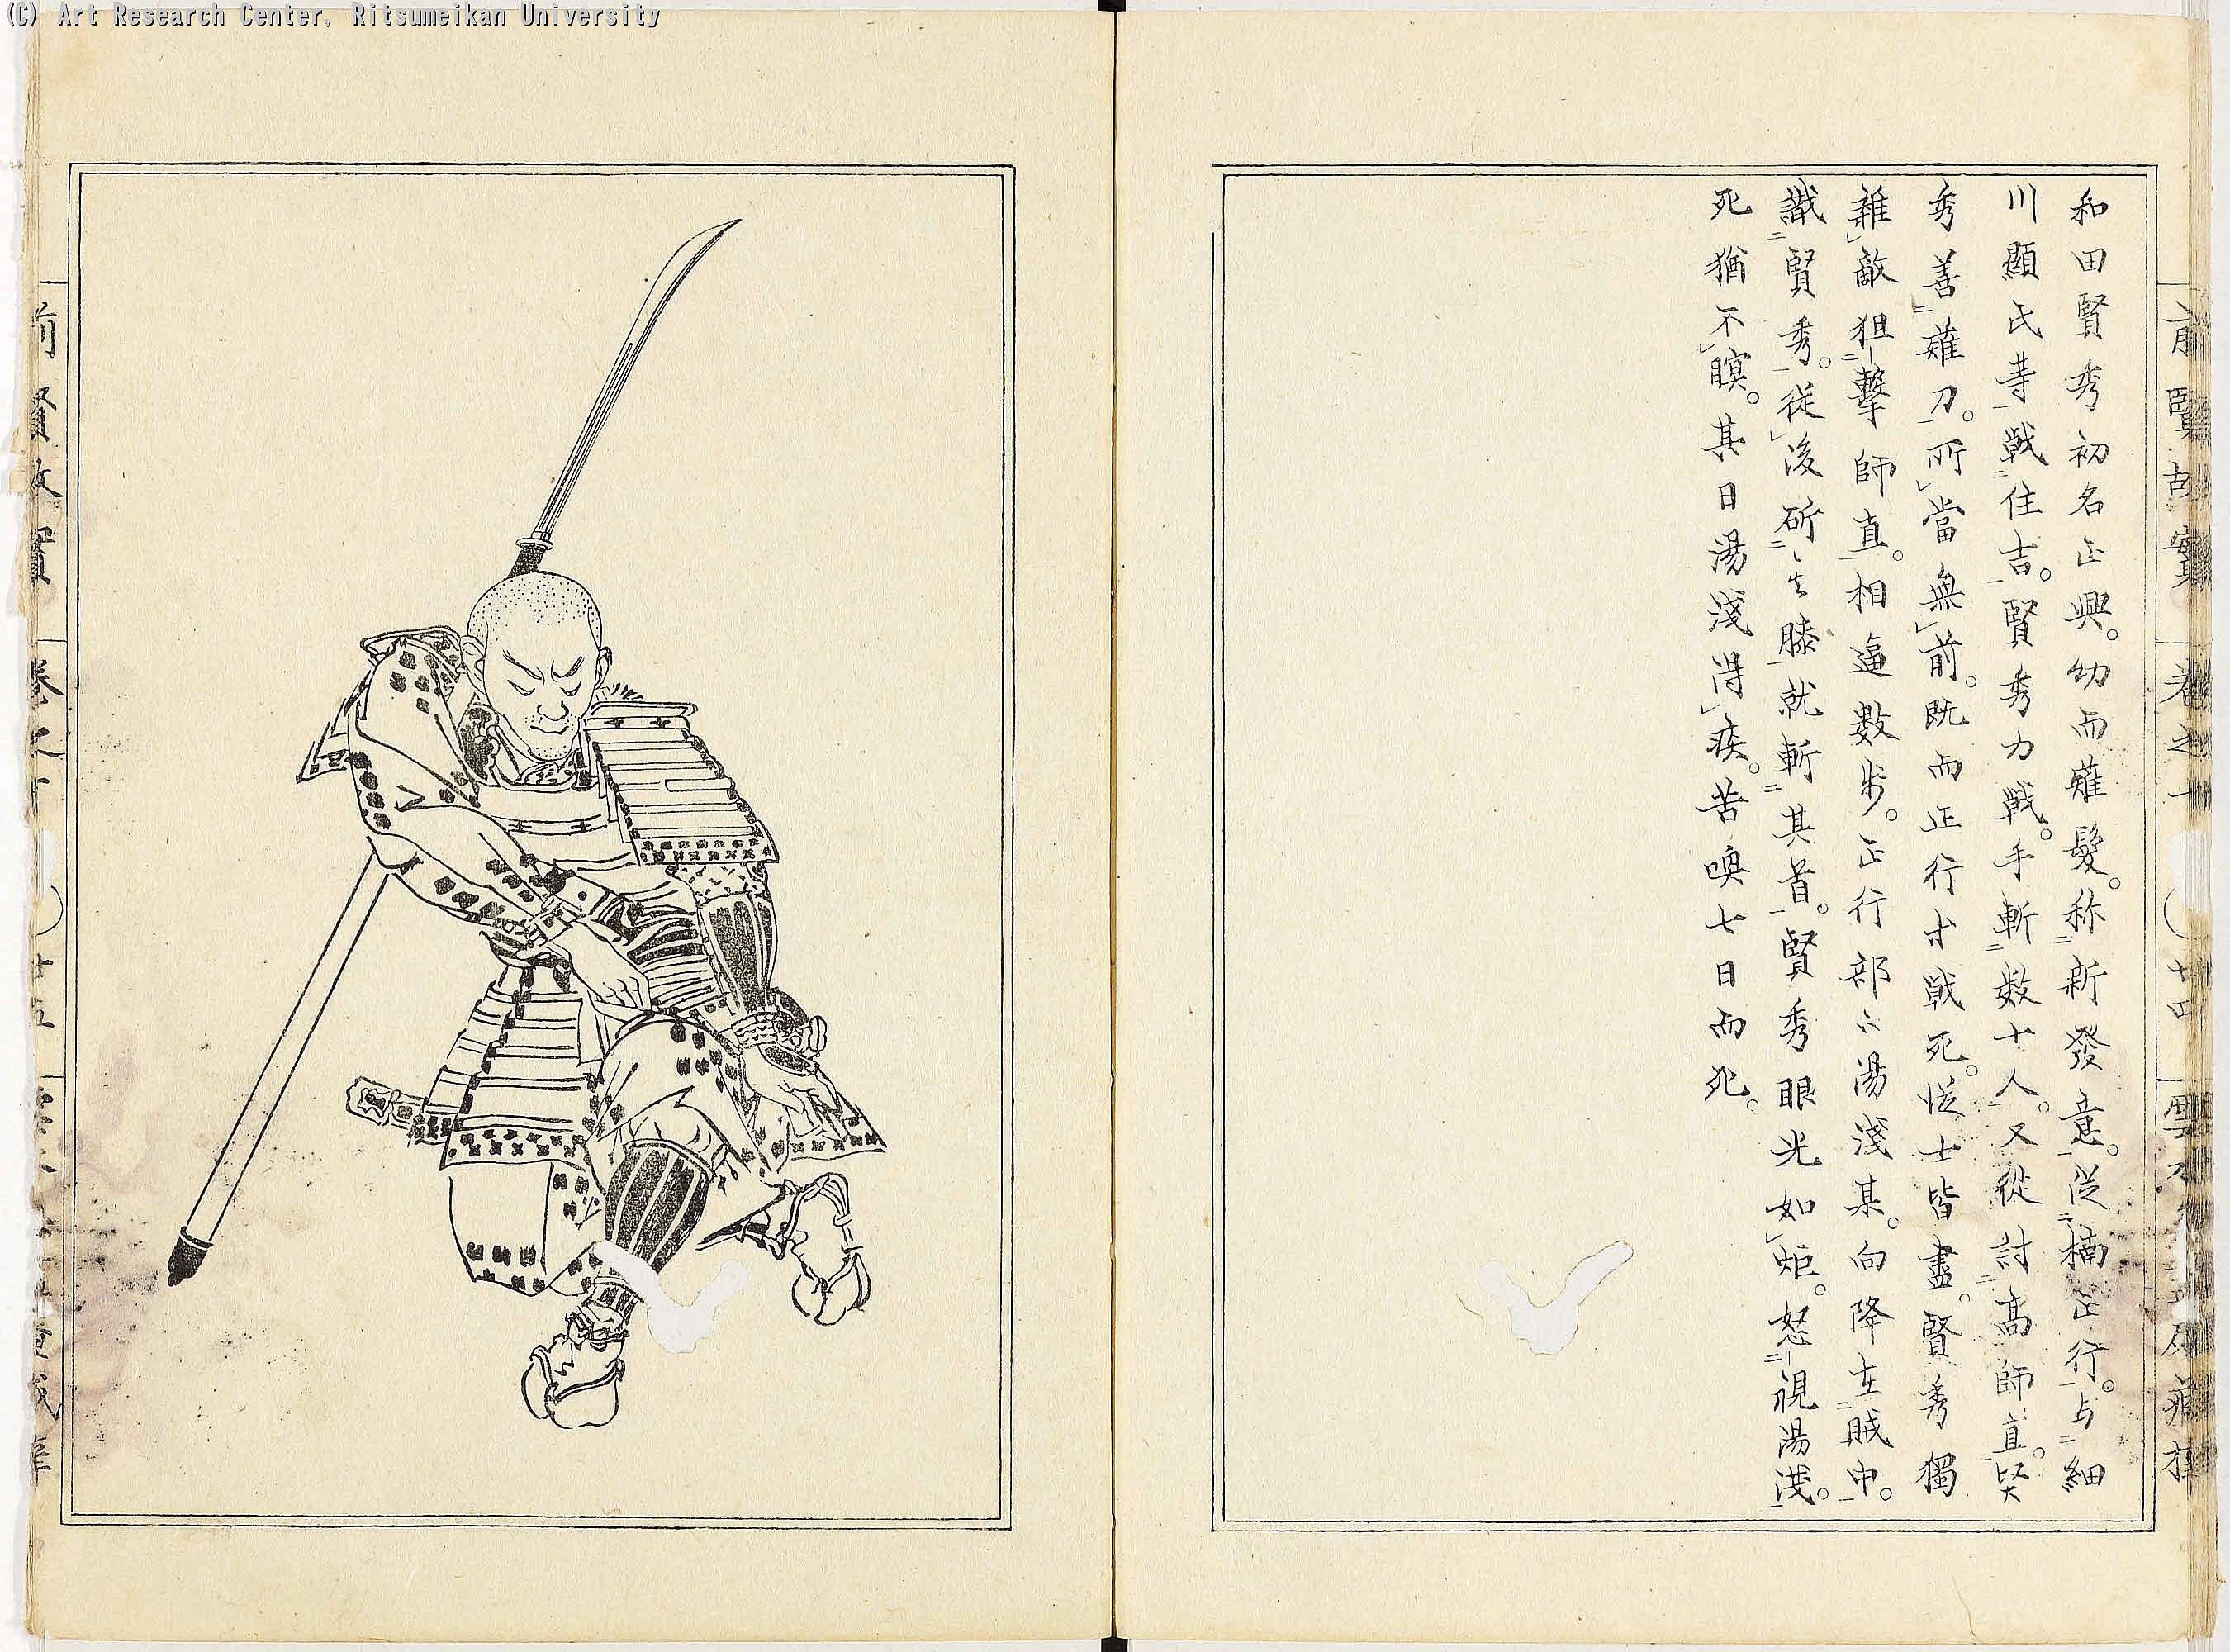 (C) Art Research Center, Ritsumeikan University
和田賢秀初名正興。幼而薙髮。称新發意。從楠正行。与細
川顯氏等戰住吉。賢秀力戰。手斬数十人。又從討高師直。賢
秀善薙刀。所當無前。既而正行等戰死。從士皆盡。賢秀獨
雜敵狙擊師直。相逼數步。正行部下湯淺某。向降在賊中。
識賢秀。從後斫其膝就斬其首。賢秀眼光如炬。怒視湯淺。
死猶不瞑。其日湯淺得疾。苦喚七日而死。
前賢故實 卷之十 廿四
前賢故實 卷之十 廿五